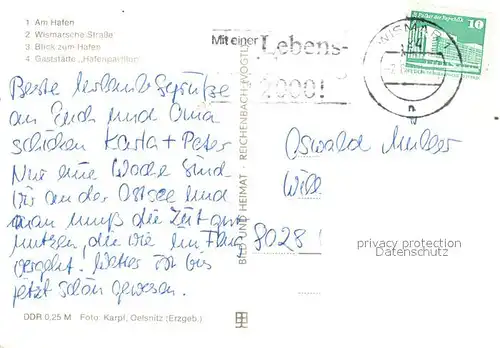 1 Am Hafen
2 Wismarsche Straße
3 Blick zum Hafen
4 Gaststätte „Hafenpavillon"
Mit einer
Lebens-
2000!
WISMAR
10
Beste Urlaubsgrüße
an Euch und Oma
schicken Karla + Peter
Nur eine Woche sind
wir an der Ostsee und
man muß die Zeit gut
nutzen, die wie im Flug
vergeht. Wetter ist bis
jetzt schön gewesen.
BILD UND HEIMAT · REICHENBACH (VOGTL
Oswald Müller
8028
privacy protection
Datenschutz
DDR 0,25 M Foto: Karpf, Oelsnitz (Erzgeb.)